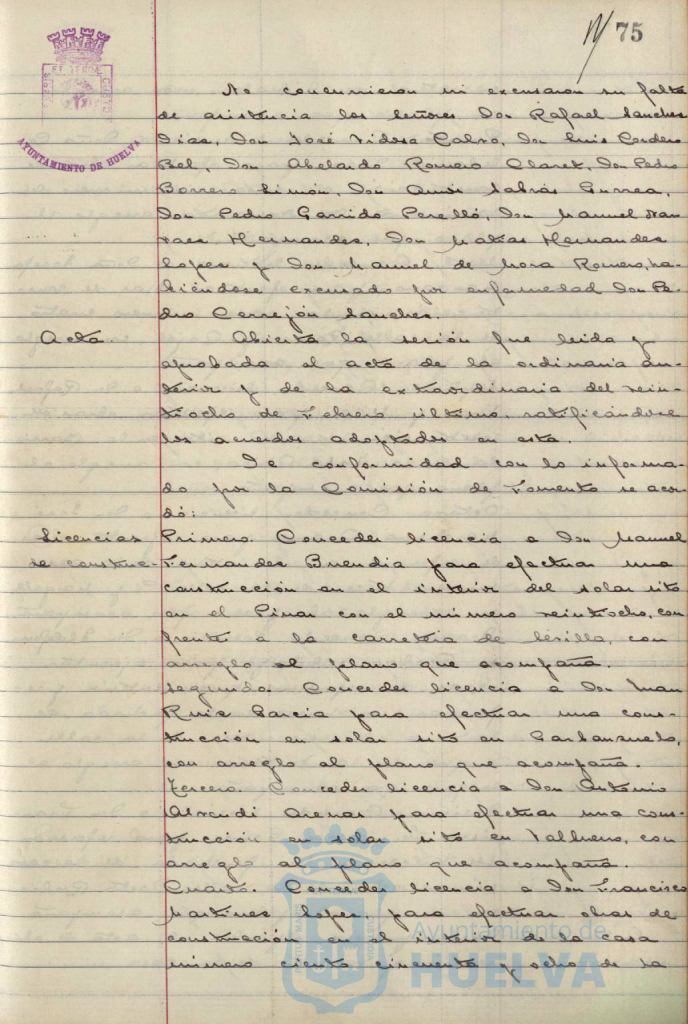 75
AYUNTAMIENTO DE HUELVA
No concurrieron ni excusaron su falta
de asistencia los señores Don Rafael Sanchez
Diaz, Don José Vidosa Calvo, Don Luis Cordero
Bel, Don Abelardo Romero Claret, Don Pedro
Borrero Limón, Don Amós Sabrás Gurrea,
Don Pedro Garrido Perelló, Don Manuel Nar-
vaez Hernandez, Don Matias Hernandez
Lopez y Don Manuel de Mora Romero, ha-
biéndose excusado por enfermedad Don Pe-
dro Cerrejón Sanchez.
Acta. Abierta la sesión fue leida y
aprobada el acta de la ordinaria an-
terior y de la extraordinaria del vein-
tiocho de Febrero último, ratificándose
los acuerdos adoptados en esta.
De conformidad con lo informa-
do por la Comisión de Fomento se acor-
dó:
Licencias Primero. Conceder licencia a Don Manuel
de construc- Fernandez Buendia para efectuar una
construcción en el interior del solar sito
en el Pinar con el número veintiocho, con
frente a la carretera de Sevilla, con
arreglo al plano que acompaña.
Segundo. Conceder licencia a Don Juan
Ruiz Garcia para efectuar una cons-
trucción en solar sito en Garbanzuelo,
con arreglo al plano que acompaña.
Tercero. Conceder licencia a Don Antonio
Arenas para efectuar una cons-
trucción en solar sito en Valbueno, con
arreglo al plano que acompaña.
Cuarto. Conceder licencia a Don Francisco
Martinez Lopez, para efectuar obras de
construcción en el interior de la casa
número ciento cincuenta y ocho de la
Ayuntamiento de
HUELVA